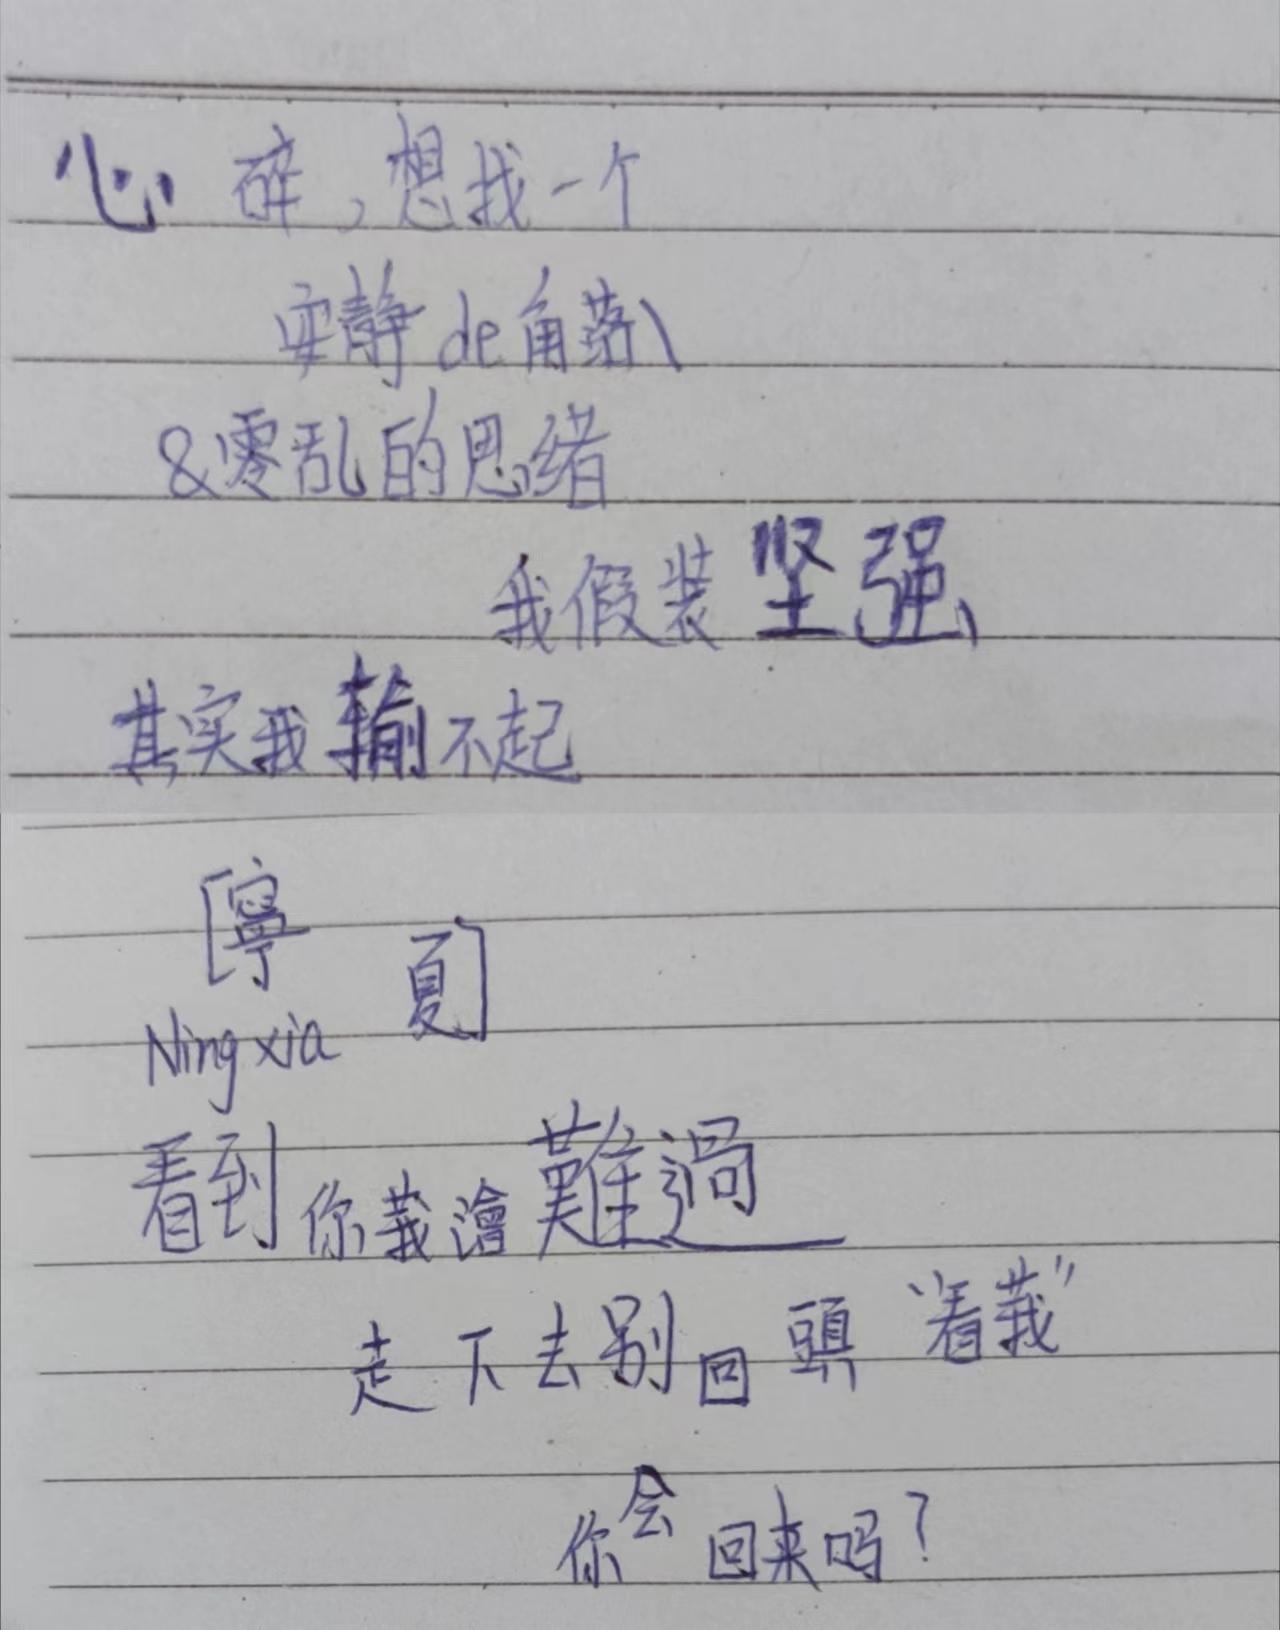 心碎，想找一个
安静de角落\
&零乱的思绪
我假装坚强、
其实我输不起
[寧 夏]
Ningxia
看到你莪澮難過
走下去别回頭“看莪”
你会回来吗？